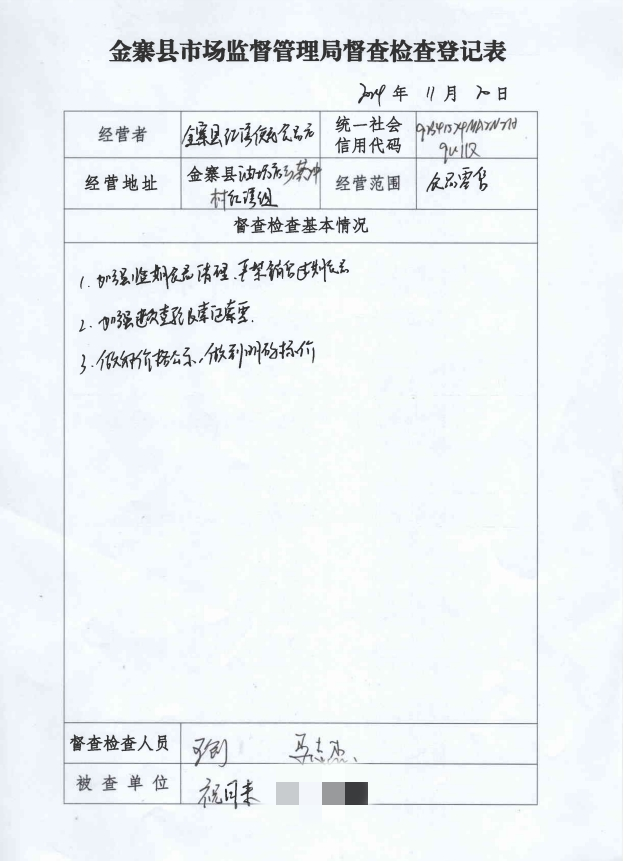 金寨县市场监督管理局督查检查登记表
2024 年 11 月 20 日
经营者 金寨县红湾便民食品店 统一社会
信用代码
经营地址 金寨县油坊店
村红湾组 经营范围 食品零售
督查检查基本情况
1. 加强临期食品清理,严禁销售过期食品
2. 加强进货查验及索证索票.
3. 做好价格公示,做到明码标价
督查检查人员 马志
被查单位 祝日来